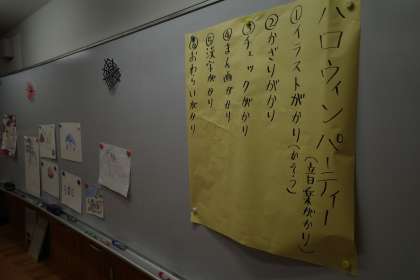 ハロウィンパーティー
(音楽がかり)
①イラストがかり(かそう)
②かざりがかり
③チェックがかり
④まん画がかり
⑤漢字がかり
⑥おわらいがかり